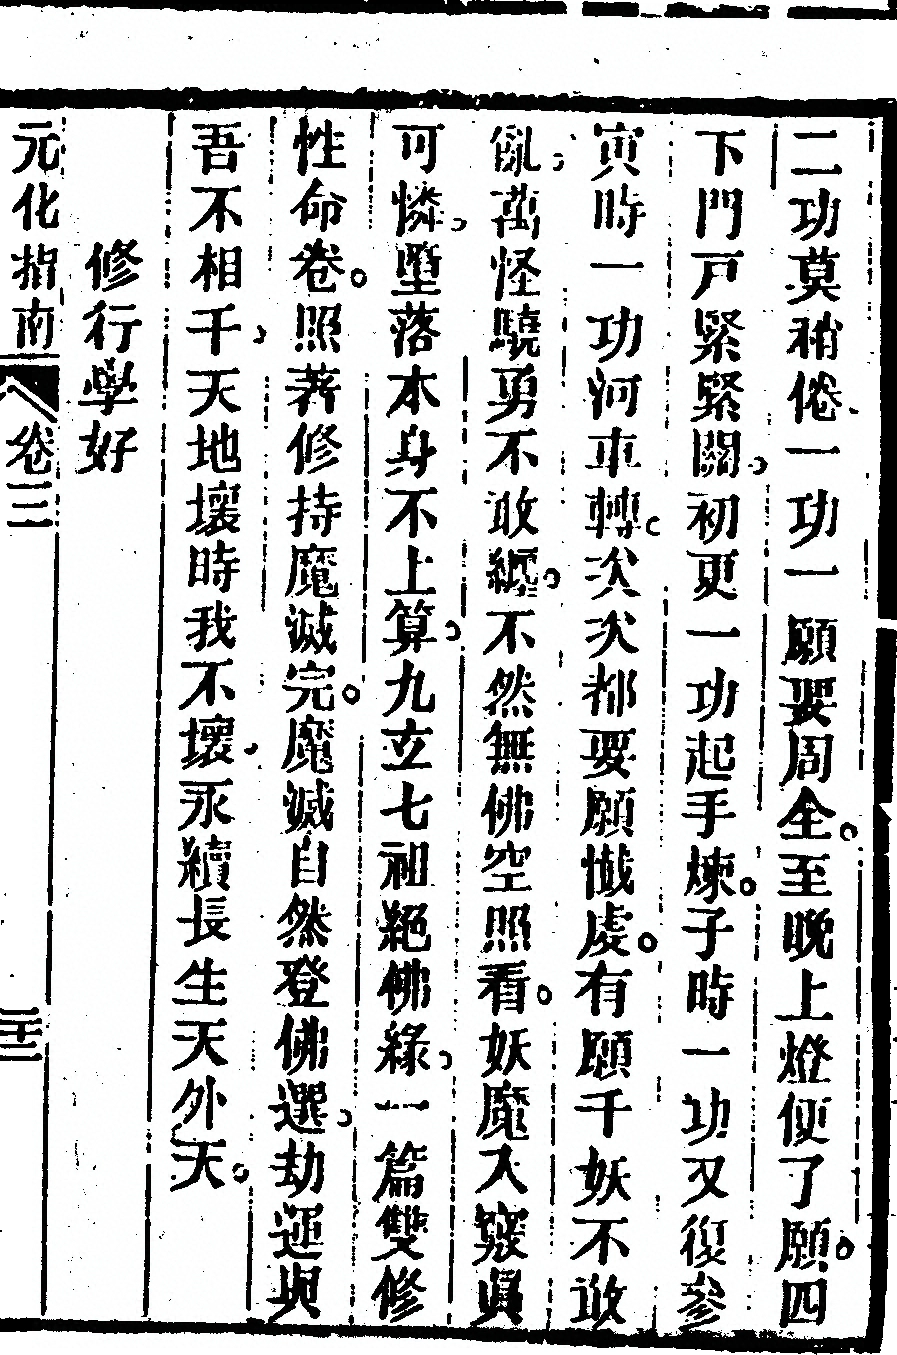 二功莫稍倦一功一願要周全至晚上燈便了願四
下門戸緊緊關初更一功起手煉子時一功又復參
寅時一功河車轉次次都要願懺虔有願千妖不敢
亂萬怪驍勇不敢纏不然無佛空照看妖魔入竅眞
可憐墮落本身不上算九玄七祖絕佛緣一篇雙修
性命卷照著修持魔滅完魔滅自然登佛選劫運與
吾不相千天地壞時我不壞永續長生天外天
修行學好
元化指南 卷三 二十二